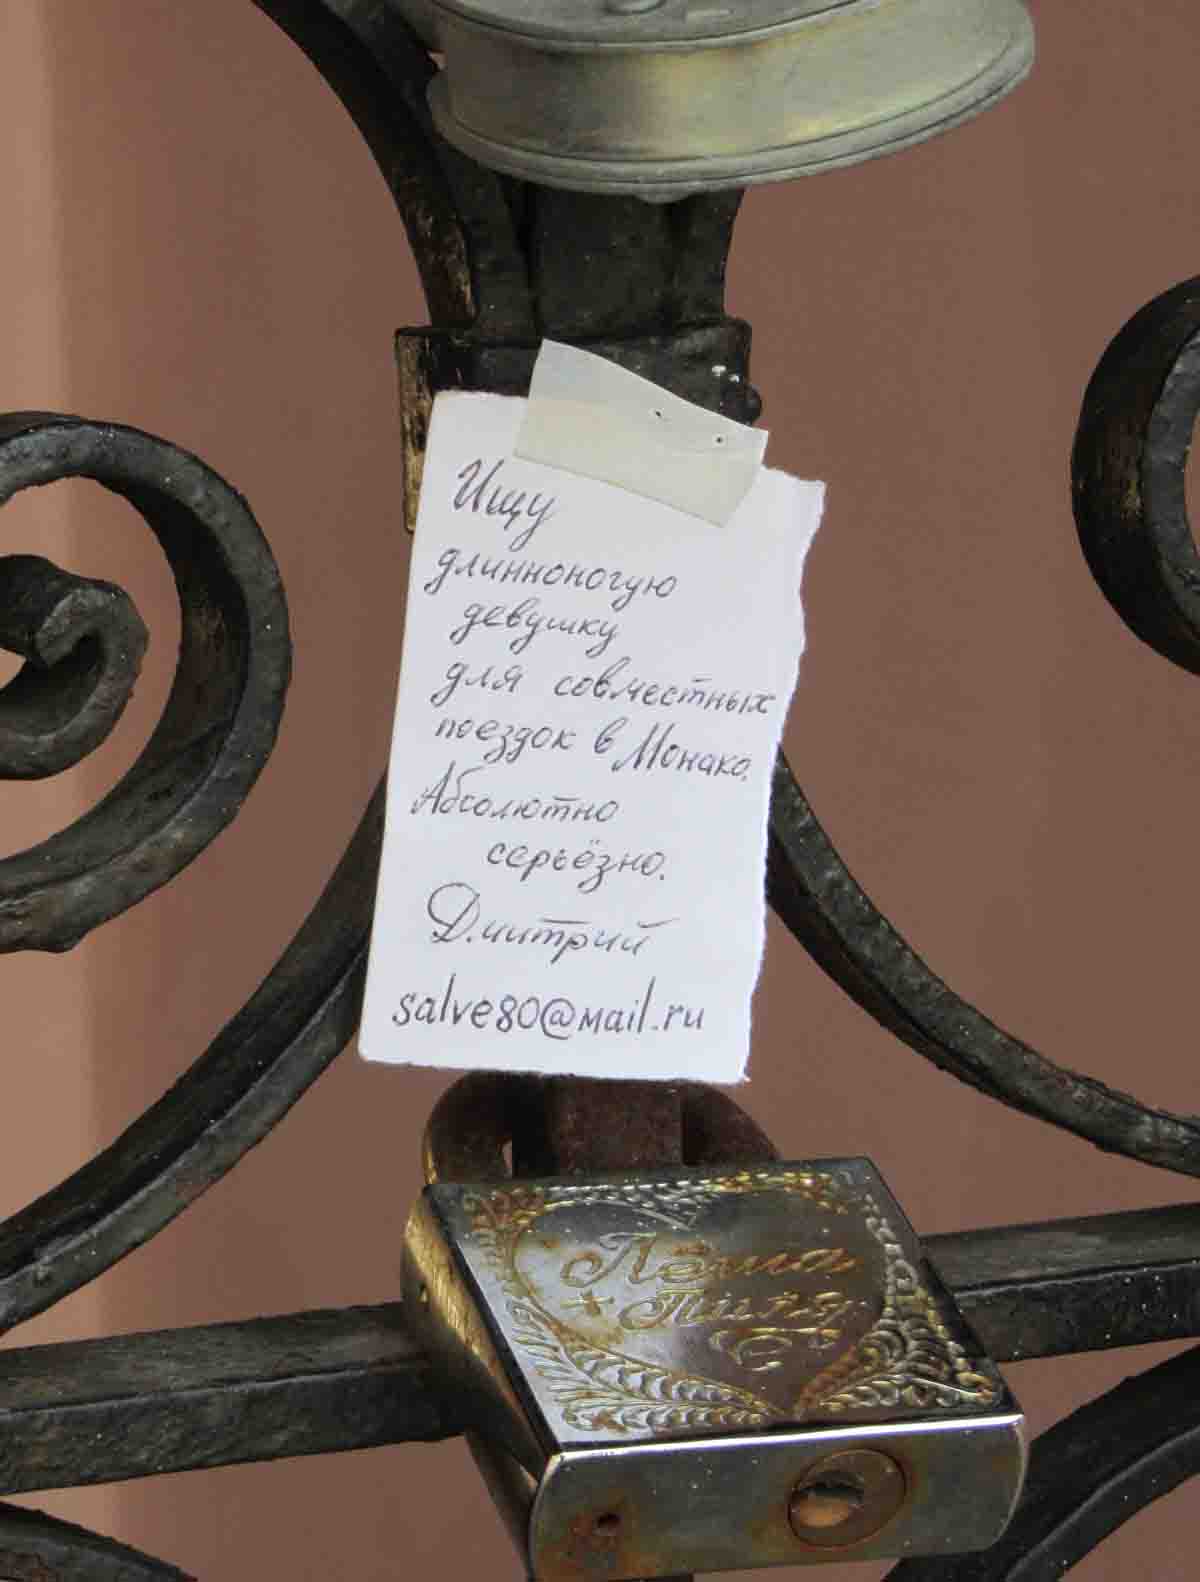 Ищу
длинноногую
девушку
для совместных
поездок в Монако.
Абсолютно
серьёзно.
Дмитрий
salve80@mail.ru
Лёша
+